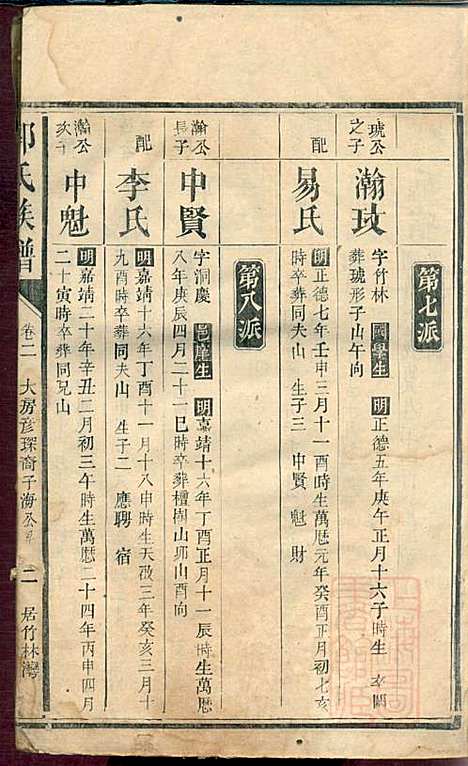 第七派
琥公之子
瀚玟
字竹林 國學生 明正德五年庚午正月十六子時生
葬琥形子山午向
配
易氏
明正德七年壬申三月十一酉時生萬曆元年癸酉正月初七亥
時卒葬同夫山 生子三 申賢 魁 財
第八派
瀚公長子
申賢
字洞慶 邑庠生 明嘉靖十六年丁酉正月十一辰時生萬曆
八年庚辰四月二十一巳時卒葬檀樹山卯山酉向
配
李氏
明嘉靖十六年丁酉十一月十八申時生天啟三年癸亥三月十
九酉時卒葬同夫山 生子二 應聘 宿
瀚公次子
申魁
明嘉靖二十年辛丑二月初三午時生萬曆二十四年丙申四月
二十寅時卒葬同兄山
氏族譜 卷二 大房彥琛裔子海公 二 居竹林灣